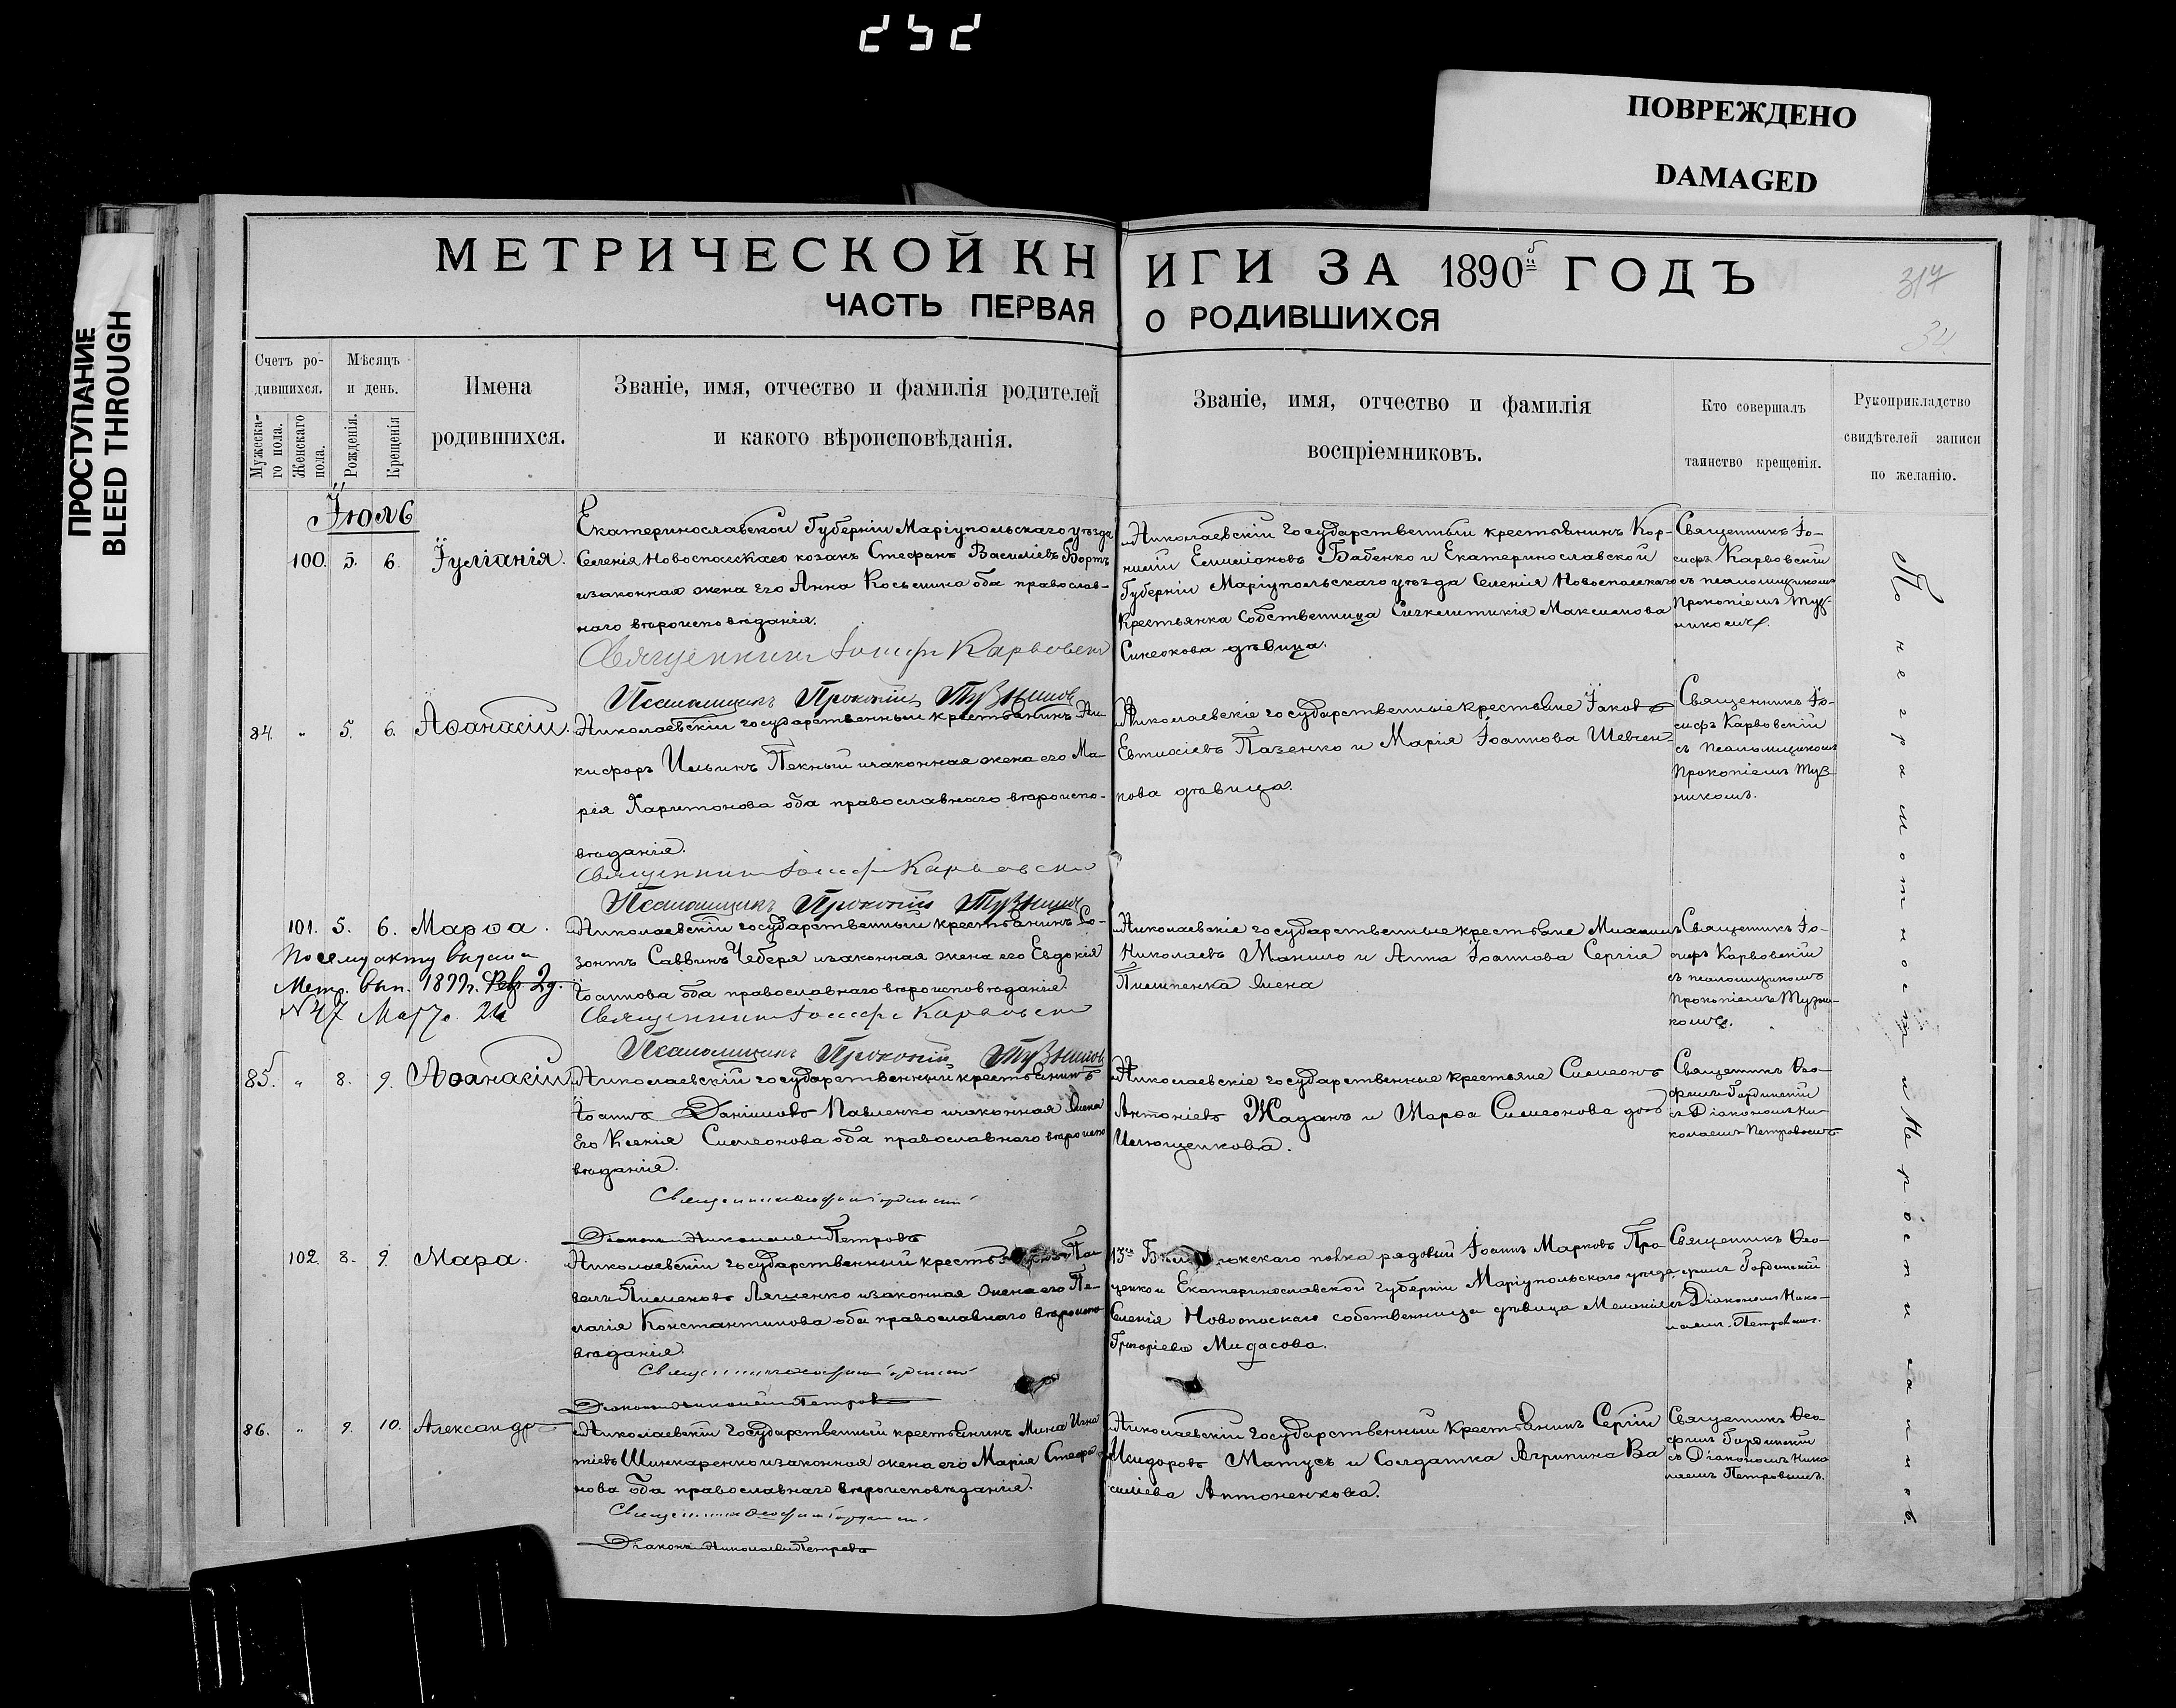 252
ПОВРЕЖДЕНО
DAMAGED
ПРОСТУПАНИЕ
BLEED THROUGH
МЕТРИЧЕСКОЙ КНИГИ ЗА 1890й ГОДЪ
ЧАСТЬ ПЕРВАЯ О РОДИВШИХСЯ
317
34
Счетъ ро-
дившихся.
Мужеска-
го пола.
Женскаго
пола.
Мѣсяцъ
и день.
Рожденія.
Крещенія
Имена
родившихся.
Званіе, имя, отчество и фамилія родителей
и какого вѣроисповѣданія.
Званіе, имя, отчество и фамилія
воспріемниковъ.
Кто совершалъ
таинство крещенія.
Рукоприкладство
свидѣтелей записи
по желанію.
Іюль
100. 5. 6. Іуліанія.
Екатеринославской Губерніи Маріупольскаго уѣзда
Селенія Новоспасскаго козакъ Стефанъ Василіевъ Бортъ
и законная жена его Анна Косьмина оба православ-
наго вѣроисповѣданія.
Священникъ Іосифъ Карвовскій
Псаломщикъ Прокопій
Николаевскій государственный крестьянинъ Кор-
нилій Емиліановъ Бабенко и Екатеринославской
Губерніи Маріупольскаго уѣзда Селенія Новоспасскаго
Крестьянка Собственница Максимова
дѣвица.
Священникъ Іо-
сифъ Карвовскій
съ псаломщикомъ
Прокопіемъ
84. " 5. 6. Аѳанасій.
Николаевскій государственный крестьянинъ Ни-
кифоръ Ильинъ Пекный и законная жена его Ма-
рія Харитонова оба православнаго вѣроиспо-
вѣданія.
Священникъ Іосифъ Карвовскій
Псаломщикъ Прокопій
Николаевскіе государственные крестьяне Іаковъ
Евтихіевъ Пазенко и Марія Іоаннова Шевчен-
кова дѣвица.
Священникъ Іо-
сифъ Карвовскій
съ псаломщикомъ
Прокопіемъ
101. 5. 6. Марѳа.
По сему акту выдана
Метр. вып. 1899г. Фев. 29.
№47 Марта 26
Николаевскій государственный крестьянинъ Со-
зонтъ Саввинъ Чеберя и законная жена его Евдокія
Іоаннова оба православнаго вѣроисповѣданія.
Священникъ Іосифъ Карвовскій
Псаломщикъ Прокопій
Николаевскіе государственные крестьяне Михаилъ
Николаевъ Манило и Анна Іоаннова Сергія
жена
Священникъ Іо-
сифъ Карвовскій
съ псаломщикомъ
Прокопіемъ
85. " 8. 9. Аѳанасій
Николаевскій государственный крестьянинъ
Іоаннъ Даніиловъ Павленко и законная жена
его Ксенія Симеонова оба православнаго вѣроиспо
вѣданія.
Діаконъ Николай Петровъ
Николаевскіе государственные крестьяне Симеонъ
Антоніевъ Жаданъ и Марѳа Симеонова
Священникъ Ѳео-
филъ Гординскій
съ Діакономъ Ни-
колаемъ Петровымъ
102. 8. 9. Мара.
Николаевскій государственный Па-
велъ Пименовъ Ляшенко и законная жена его Пе-
лагія Константинова оба православнаго вѣроиспо
вѣданія.
Діаконъ Николай Петровъ
полка рядовый Іоаннъ Марковъ Про
ценко и Екатеринославской губерніи Маріупольскаго уѣзда
Селенія Новоспаскаго собственница дѣвица Меланія
Григоріева Мидасова.
Священникъ Ѳео-
филъ Гординскій
съ Діакономъ Нико-
лаемъ Петровымъ.
86. " 9. 10. Александръ
Николаевскій Государственный крестьянинъ Мина Игна
тіевъ Шинкаренко и законная жена его Марія Стефа
нова оба православнаго вѣроисповѣданія.
Діаконъ Николай Петровъ
Николаевскій Государственный Крестьянинъ Сергій
Исидоровъ Матусъ и Солдатка Агрипина Ва
силіева Антоненкова.
Священникъ Ѳео
филъ Гординскій
съ Діакономъ Нико
лаемъ Петровымъ.
По неграмотности